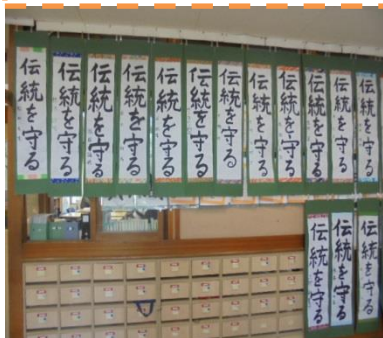 伝統を守る
伝統を守る
伝統を守る
伝統を守る
伝統を守る
伝統を守る
伝統を守る
伝統を守る
伝統を守る
伝統を守る
伝統を守る
伝統を守る
伝統を守る
伝統を守る
伝統を守る